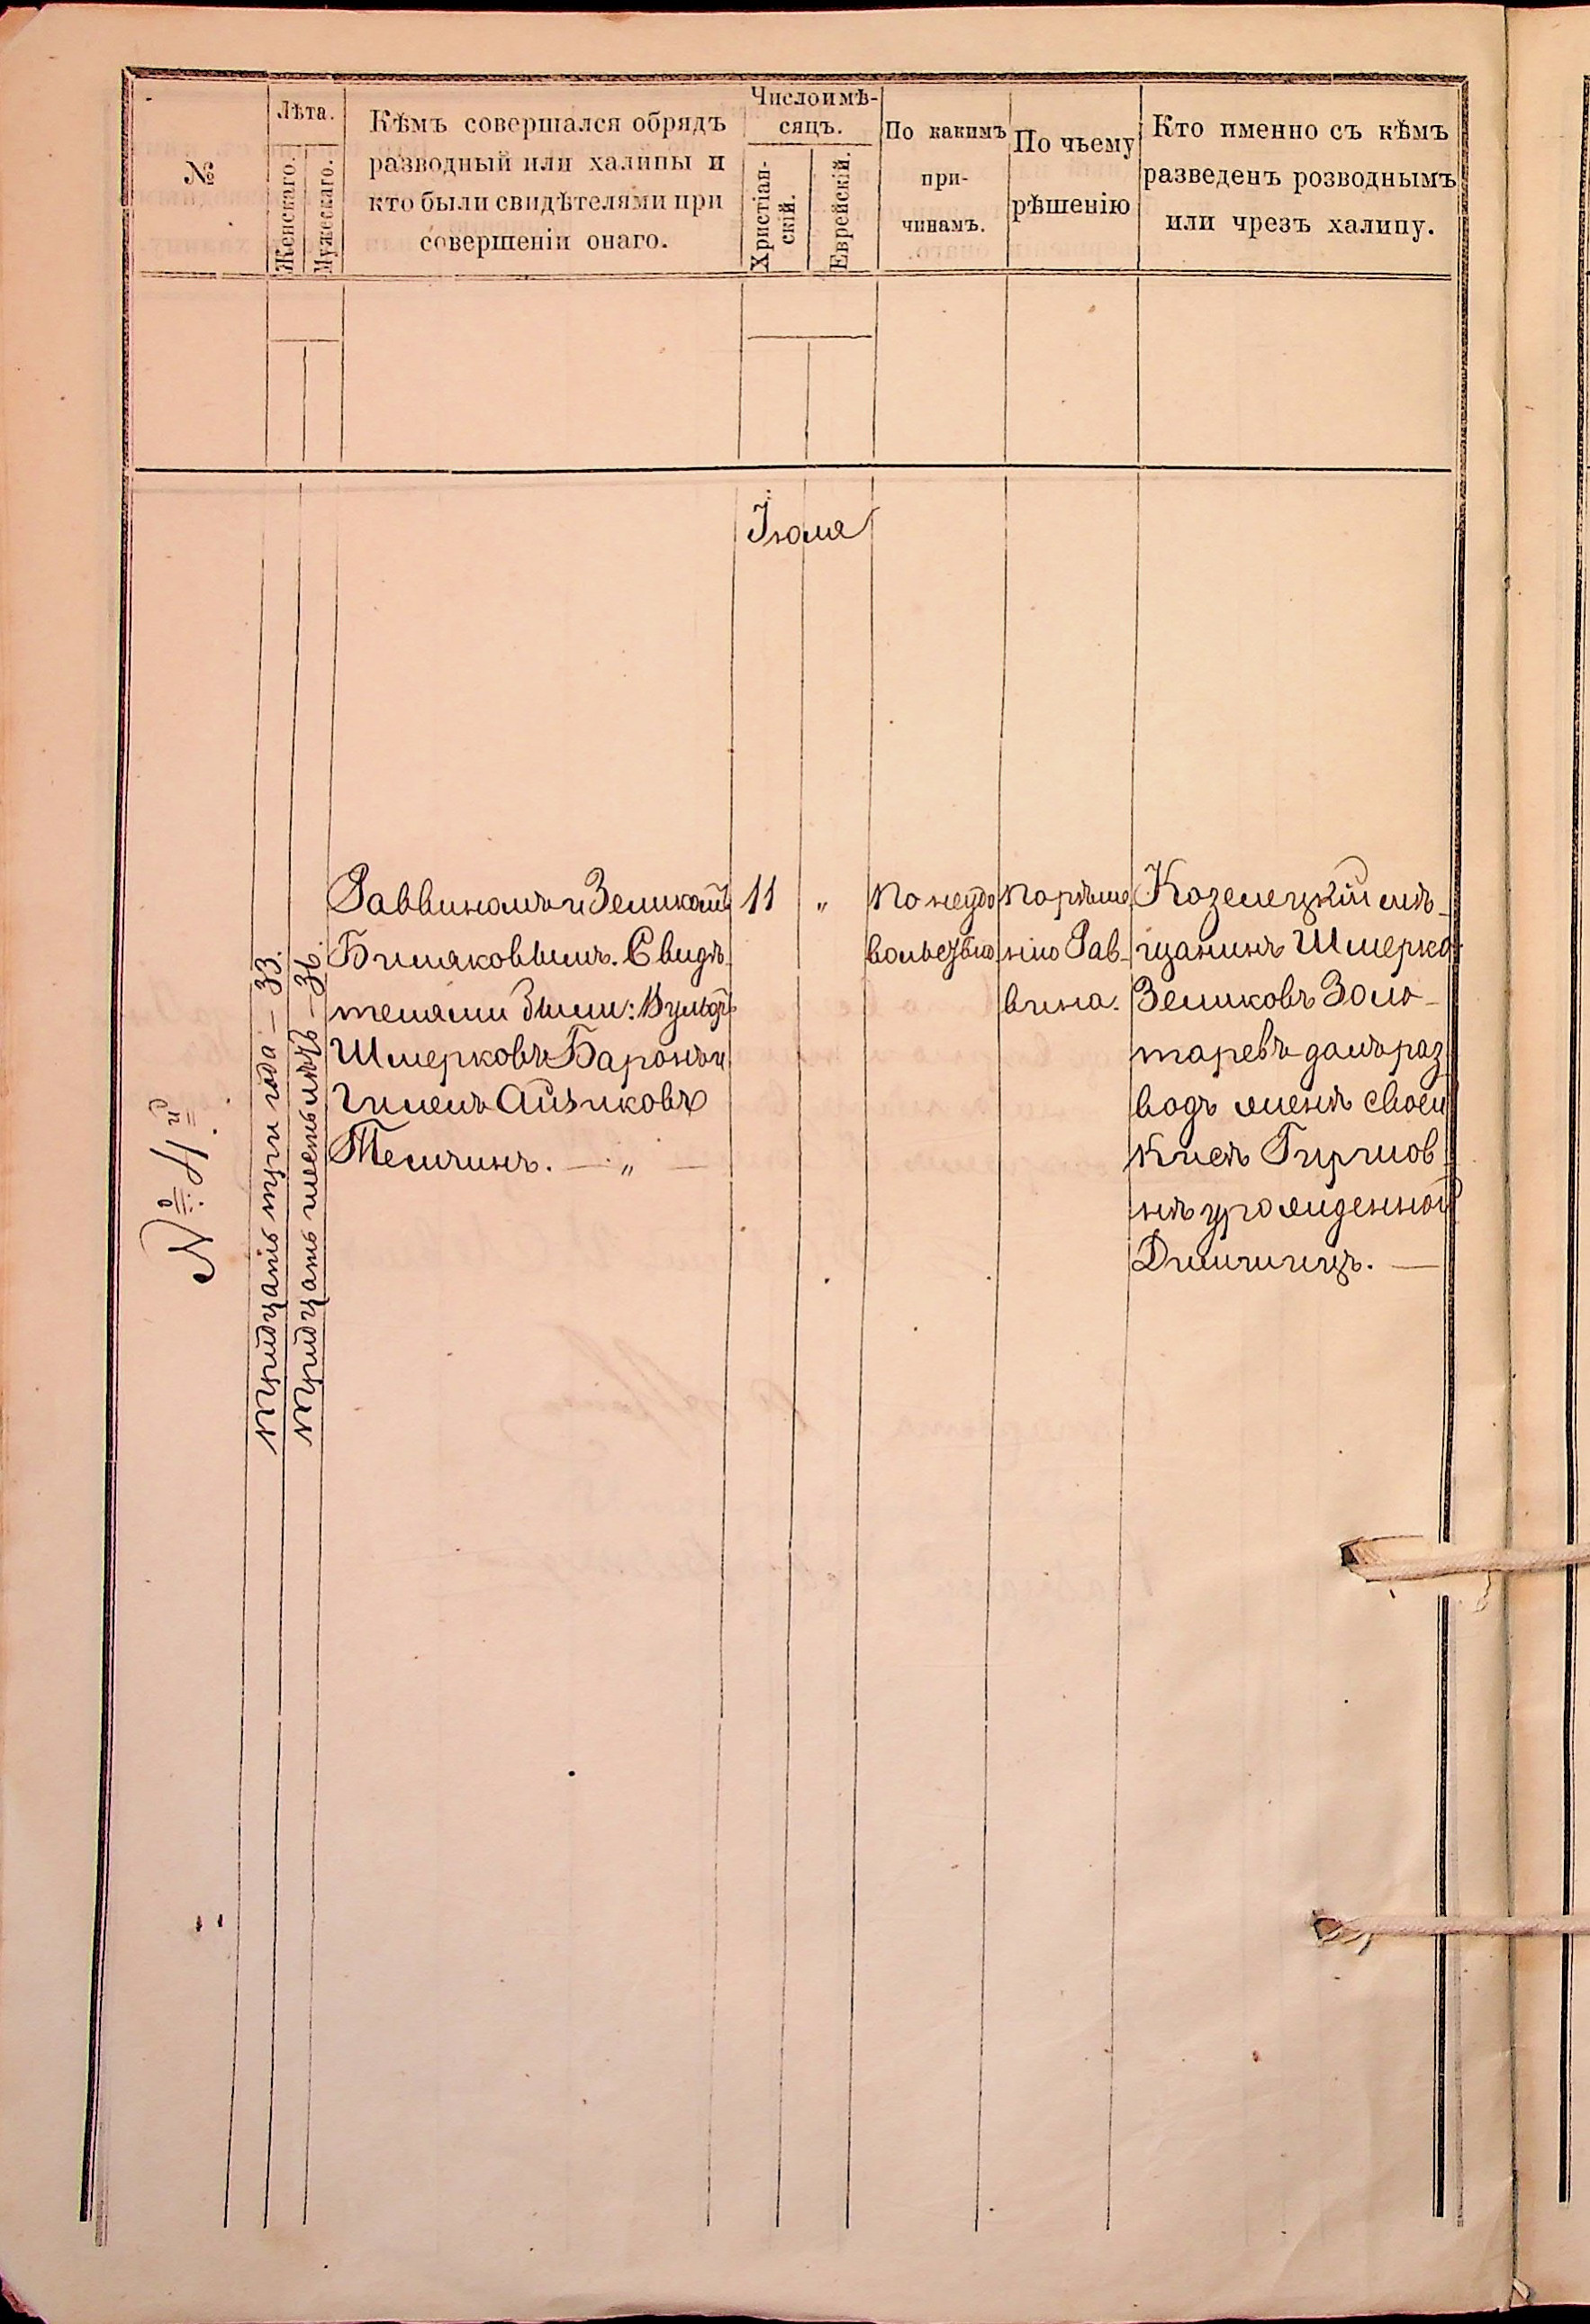 №
Лѣта.
Женскаго.
Мужескаго.
Кѣмъ совершался обрядъ
разводный или халицы и
кто были свидѣтелями при
совершеніи онаго.
Число и мѣ-
сяцъ.
Христіан-
скій.
Еврейскій.
По какимъ
при-
чинамъ.
По чьему
рѣшенію
Кто именно съ кѣмъ
разведенъ розводнымъ
или чрезъ халицу.
Іюля
№ 4й
тридцать три года – 33.
тридцать шесть лѣтъ – 36.
Раввиномъ Зеликомъ
Бимяковымъ. Свидѣ-
телями были: Вульфъ
Шмерковъ Баронъ и
Гилель Айзиковъ
Темчинъ. — „ —
11
„
По неудо
вольствію
По рѣше
нію Рав-
вина.
Козелецкій мѣ-
щанинъ Шмерко
Зеликовъ Золо-
таревъ далъ раз
водъ женѣ своей
Кисѣ Гиршов
нѣ урожденной